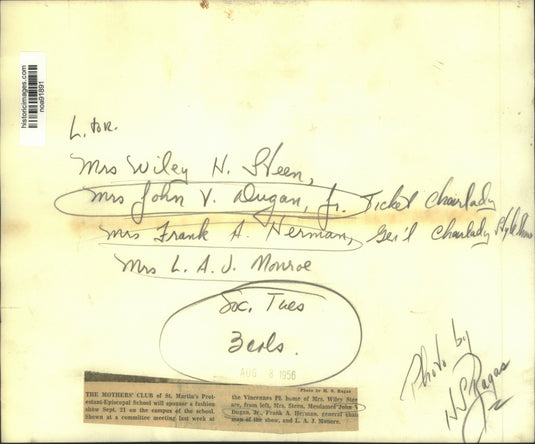 historicimages.com
noa91891
L. to R.
Mrs Wiley N. Steen,
Mrs John V. Dugan, Jr. Ticket Chairlady
Mrs Frank A. Herman, Gen'l Chairlady Style Show
Mrs L. A. J. Monroe
Soc. Tues
3 cols.
AUG 8 1956
Photo by
Ragas
Photo by H. S. Ragas
THE MOTHERS' CLUB of St. Martin's Prot-
estant-Episcopal School will sponsor a fashion
show Sept. 21 on the campus of the school.
Shown at a committee meeting last week at
the Vincennes Pl. home of Mrs. Wiley Ste
are, from left, Mrs. Steen, Mesdames John
Dugan, Jr., Frank A. Herman, general chair-
man of the show, and L. A. J. Monroe.